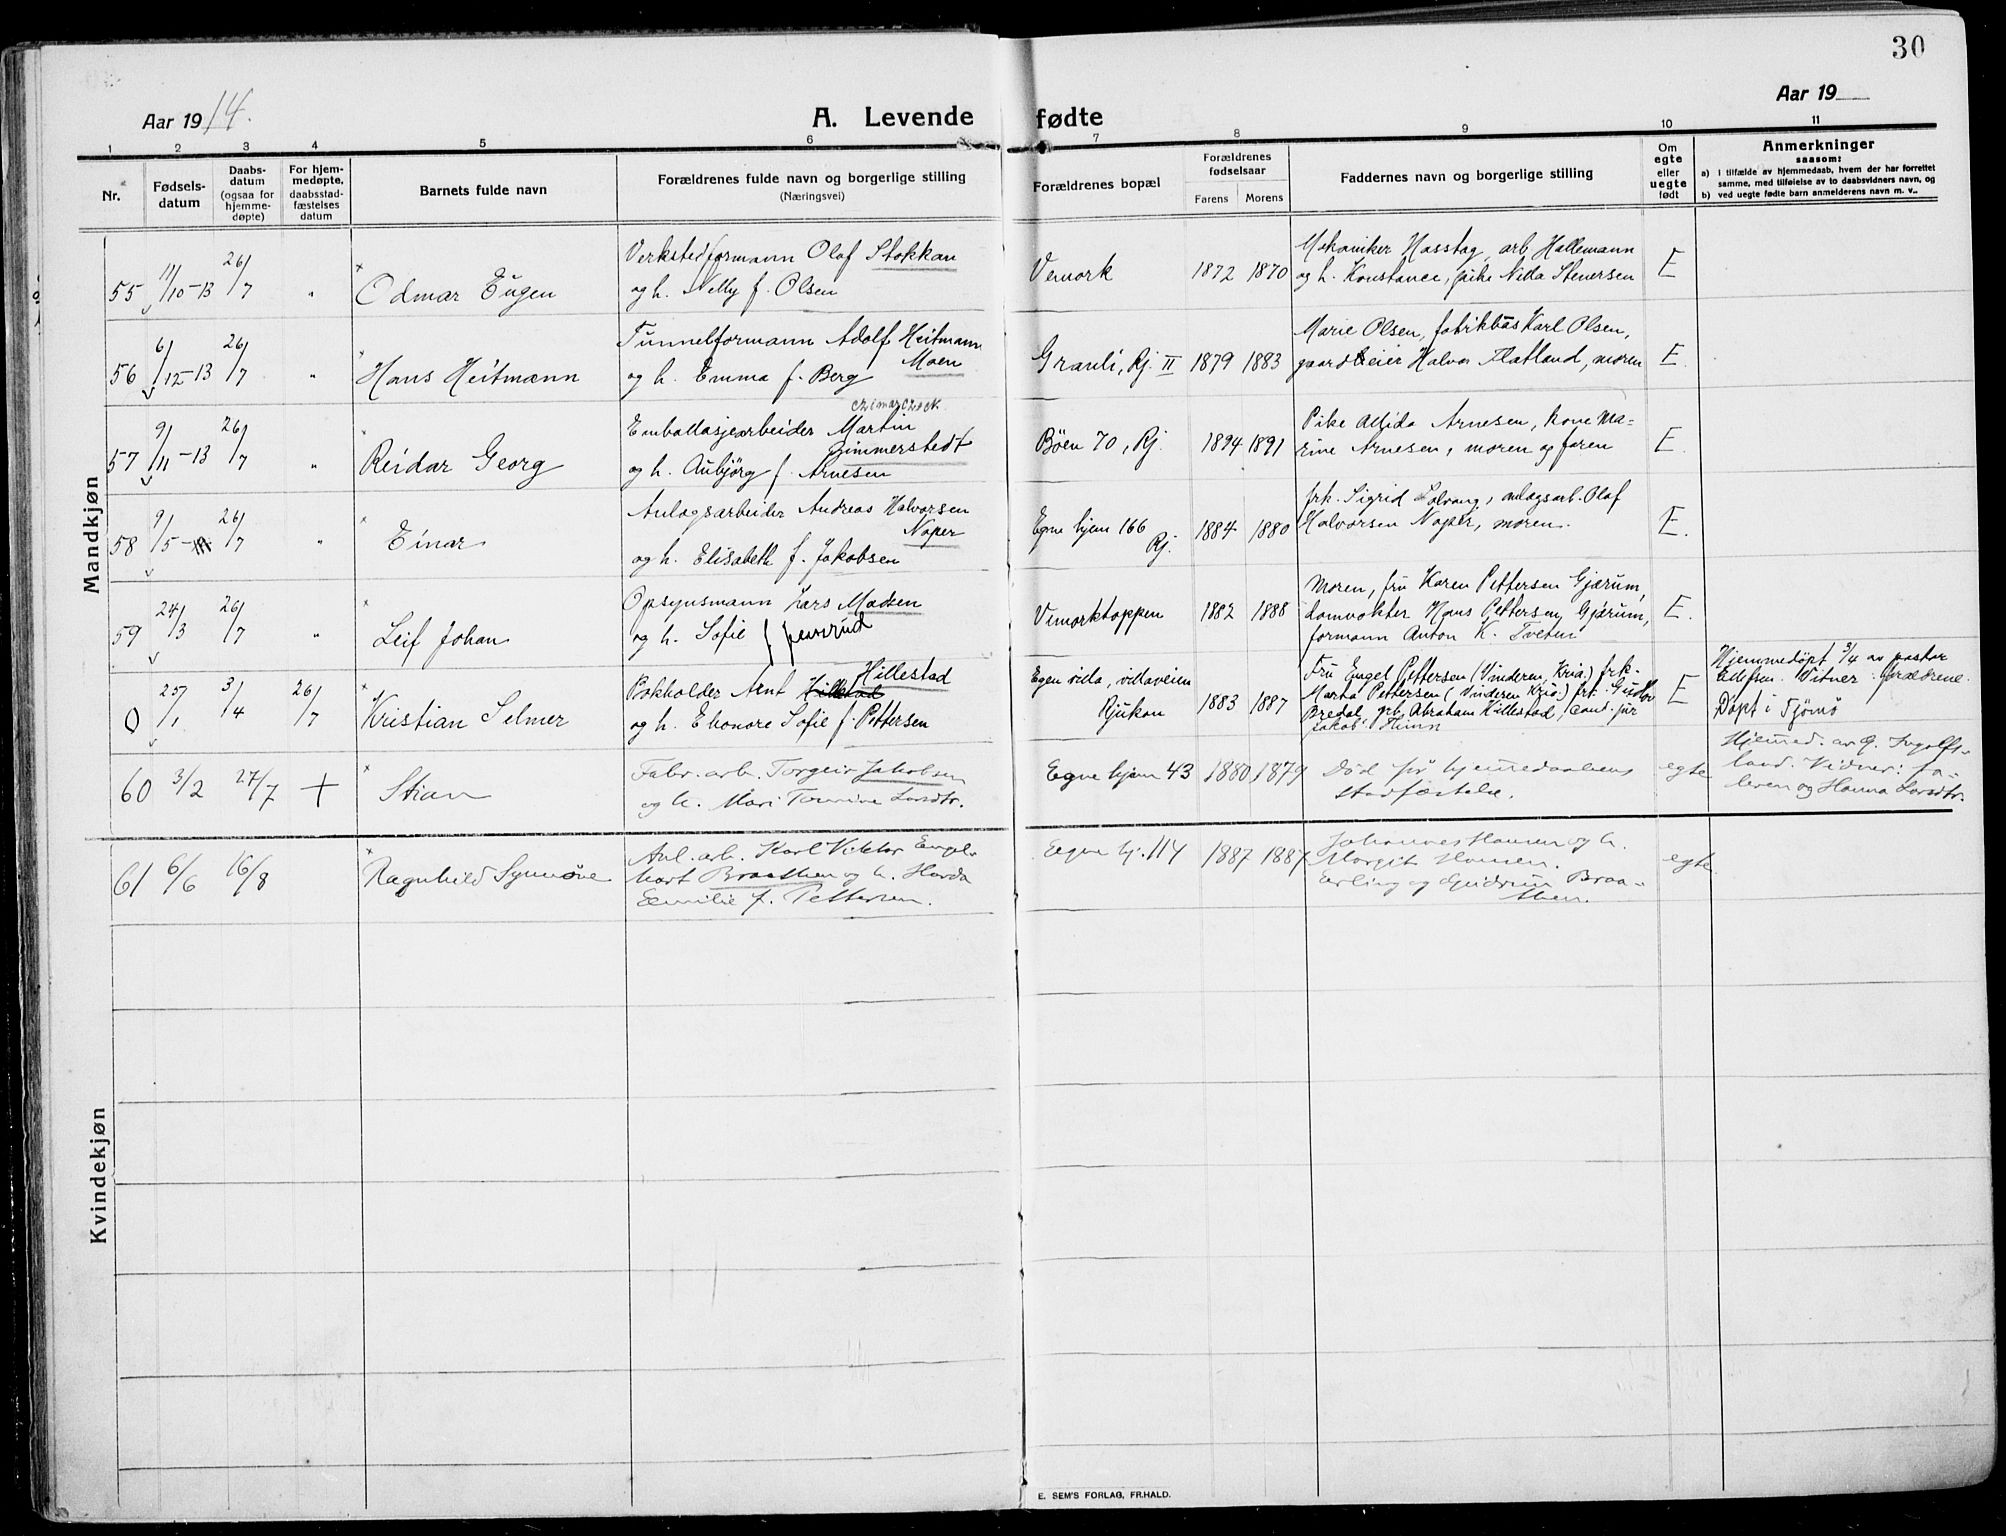 30
Aar 1914.
A. Levende fødte
Aar 19
1 2 3 4 5 6 7 8 9 10 11
Nr.
Fødsels-
datum
Daabs-
datum
(ogsaa for
hjemme-
døpte)
For hjem-
medøpte,
daabsstad-
fæstelses
datum
Barnets fulde navn
Forældrenes fulde navn og borgerlige stilling
(Næringsvei)
Forældrenes bopæl
Forældrenes
fødselsaar
Farens Morens
Faddernes navn og borgerlige stilling
Om
egte
eller
uegte
født
Anmerkninger
saasom:
a) i tilfælde av hjemmedaab, hvem der har forrettet
samme, med tilføielse av to daabsvidners navn, og
b) ved uegte fødte barn anmelderens navn m. v..
Mandkjøn
55 11/10-13 26/7 " Odmar Eugen
Verkstedformann Olaf Stokkan
og h. Nelly f. Olsen
Vemork 1872 1870
Mekaniker Hasstag, arb Hallemann
og h. Konstance, pike Nilla Stenersen
E
56 6/12-13 26/7 " Hans Heitmann
Tunnelformann Adolf Heitmann
Moen
og h. Emma f. Berg
Granli, Rj. II 1879 1883
Marie Olsen, fabrikbas Karl Olsen,
gaardeier Halvor Flatland, moren
E.
57 9/11-13 26/7 " Reidar Georg
czimarczick
Emballasjearbeider Martin
Zimmerstedt
og h. Aubjörg f. Arnesen
Bøen 70, Rj. 1894 1891
Pike Alfida Arnesen, kone Ma=
rine Arnesen, moren og faren
E.
58 9/5 26/7 " Einar
Anlægsarbeider Andreas Halvorsen
Naper
og h. Elisabeth f. Jakobsen
Egne hjem 166
Rj.
1884 1880
frk. Sigrid Solvang, anlægsarb. Olaf
Halvorsen Naper, moren.
E.
59 24/3 26/7 " Leif Johan
Opsynsmann Lars Madsen
og h. Sofie f
Vemorktoppen 1882 1888
Moren, fru Karen Pettersen Gjærum,
damvokter Hans Pettersen Gjærum,
formann Anton K. Tveten
E.
0 25/1 3/4 26/7 Kristian Selmer
Hillestad
Bokholder Arnt
og h. Ehonore Sofie f. Pettersen
Egen villa, villaveien
Rjukan
1883 1887
Fru Engel Pettersen (Vinderen, Kria.) frk.
Marta Pettersen (Vinderen Kria.) frk. Gudlov
Bredal, grb. Abraham Hillestad, cand. jur
Jakob
E
Hjemmedøpt 3/4 av pastor
Ellefsen. Vitner: forældrene.
Døpt i Tjømø
60 3/2 27/7 + Stian
Fabr. arb. Torgeir Jakobsen
og h. Mari Tomine Larsdtr.
Egne hjem 43 1880 1879
Død før hjemmedaabens
stadfæstelse.
egte
Hjemmed. av G. Ingolfs-
land. Vidner: fa-
deren og Hanna Larsdtr.
Kvindekjøn
61 6/6 16/8 Ragnhild Synnøve
Anl. arb. Karl Viktor Engel-
hart Braathen og h. Harda
Emilie f. Pettersen.
Egne hj. 114 1887 1887
Johannes Hansen og h.
Margit Hansen.
Erling og Gudrun Braa-
then.
egte
E. SEM'S FORLAG, FR.HALD.